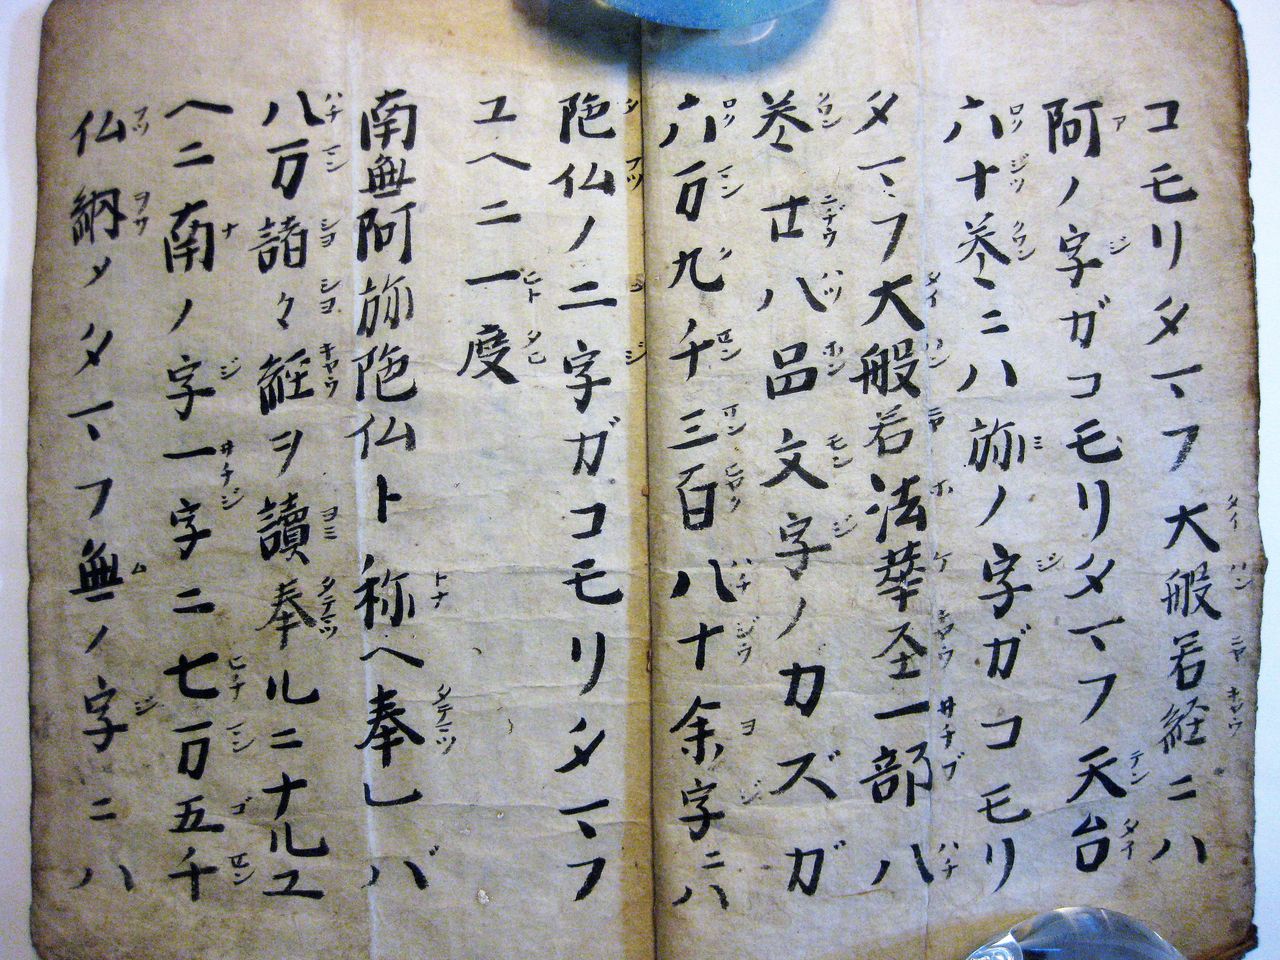 コモリタマフ大般若経ニハ
阿ノ字ガコモリタマフ天台
六十巻ニハ弥ノ字ガコモリ
タマフ大般若法華全一部八
巻廿八品文字ノカズガ
六万九千三百八十余字ニハ
陁仏ノ二字ガコモリタマフ
ユヘニ一度
南無阿弥陁仏ト称ヘ奉レバ
八万諸々経ヲ讀奉ルニナルユ
ヘニ南ノ字一字ニ七万五千
仏納メタマフ無ノ字ニハ